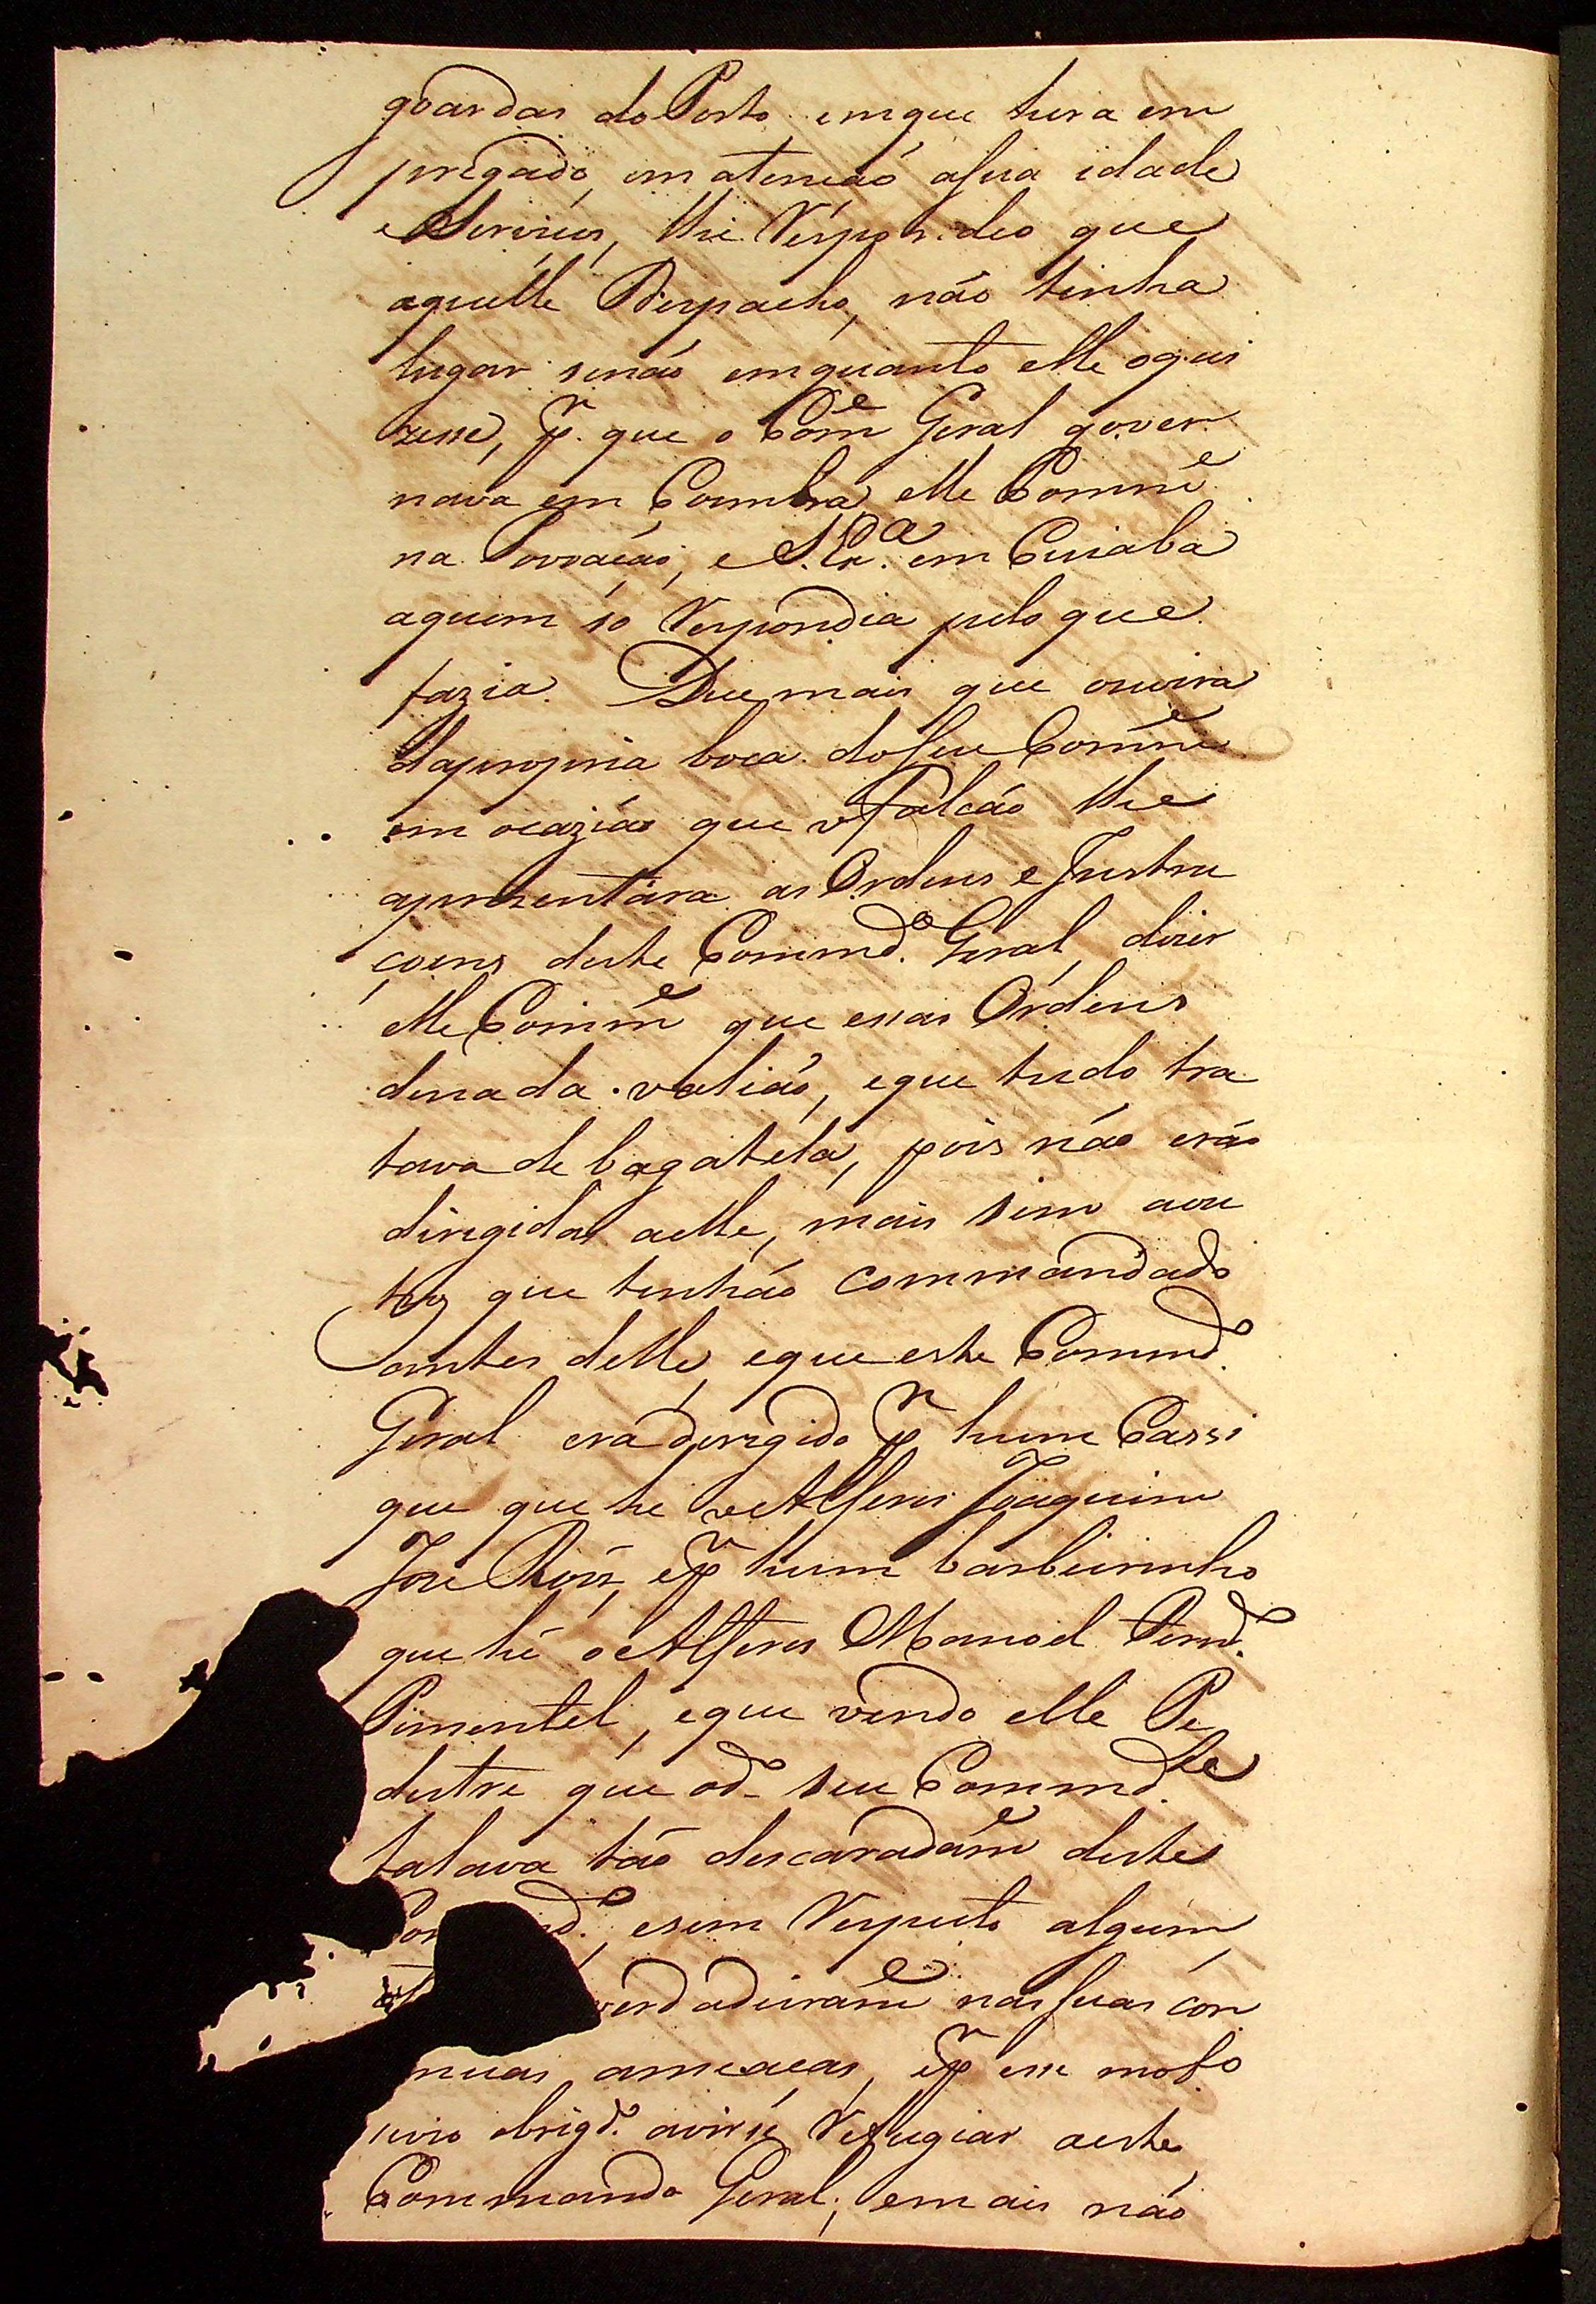 goardas do Posto emque hera em
pregado, em atencaõ asua idade
e Servicos, lhe Respondeo que
aquelle Despacho, não tinha
lugar senão emquanto elle oqui
zesse, pr. que o Come Geral gover
nava em Coimbra, elle Comme
na Povoacão, e S. Exa. em Cuiaba
aquem só Respondia pelo que
fazia. Que mais que ouvira
dapropria boca doseu Comme
em ocazião que o Falcão lhe
aprezentára as Ordens e Instru
coens deste Commdo. Geral, dicer
elle Comme que essas Ordens
denada valião, eque tudo tra
tava de bagatela, pois não erão
dirigidas aelle, mais sim aou
tros que tinhão commandado
antes delle, eque este Commdo.
Geral era derigido pr hum Cassi
que que he o Alferes Joaquim
Joze Roiz, e pr hum barbeirinho
que hé o Alferes Manoel Pernd.
Pimentel, eque vendo elle Pe
destre que od. seu Commdte
falava tão descaradame destes
Com do., esem Respeito algum
verdadeirame nas suas con
nuas ameacas, e pr esse moto
obrigdo. avirse Refugiar aeste
Commando Geral; emais não